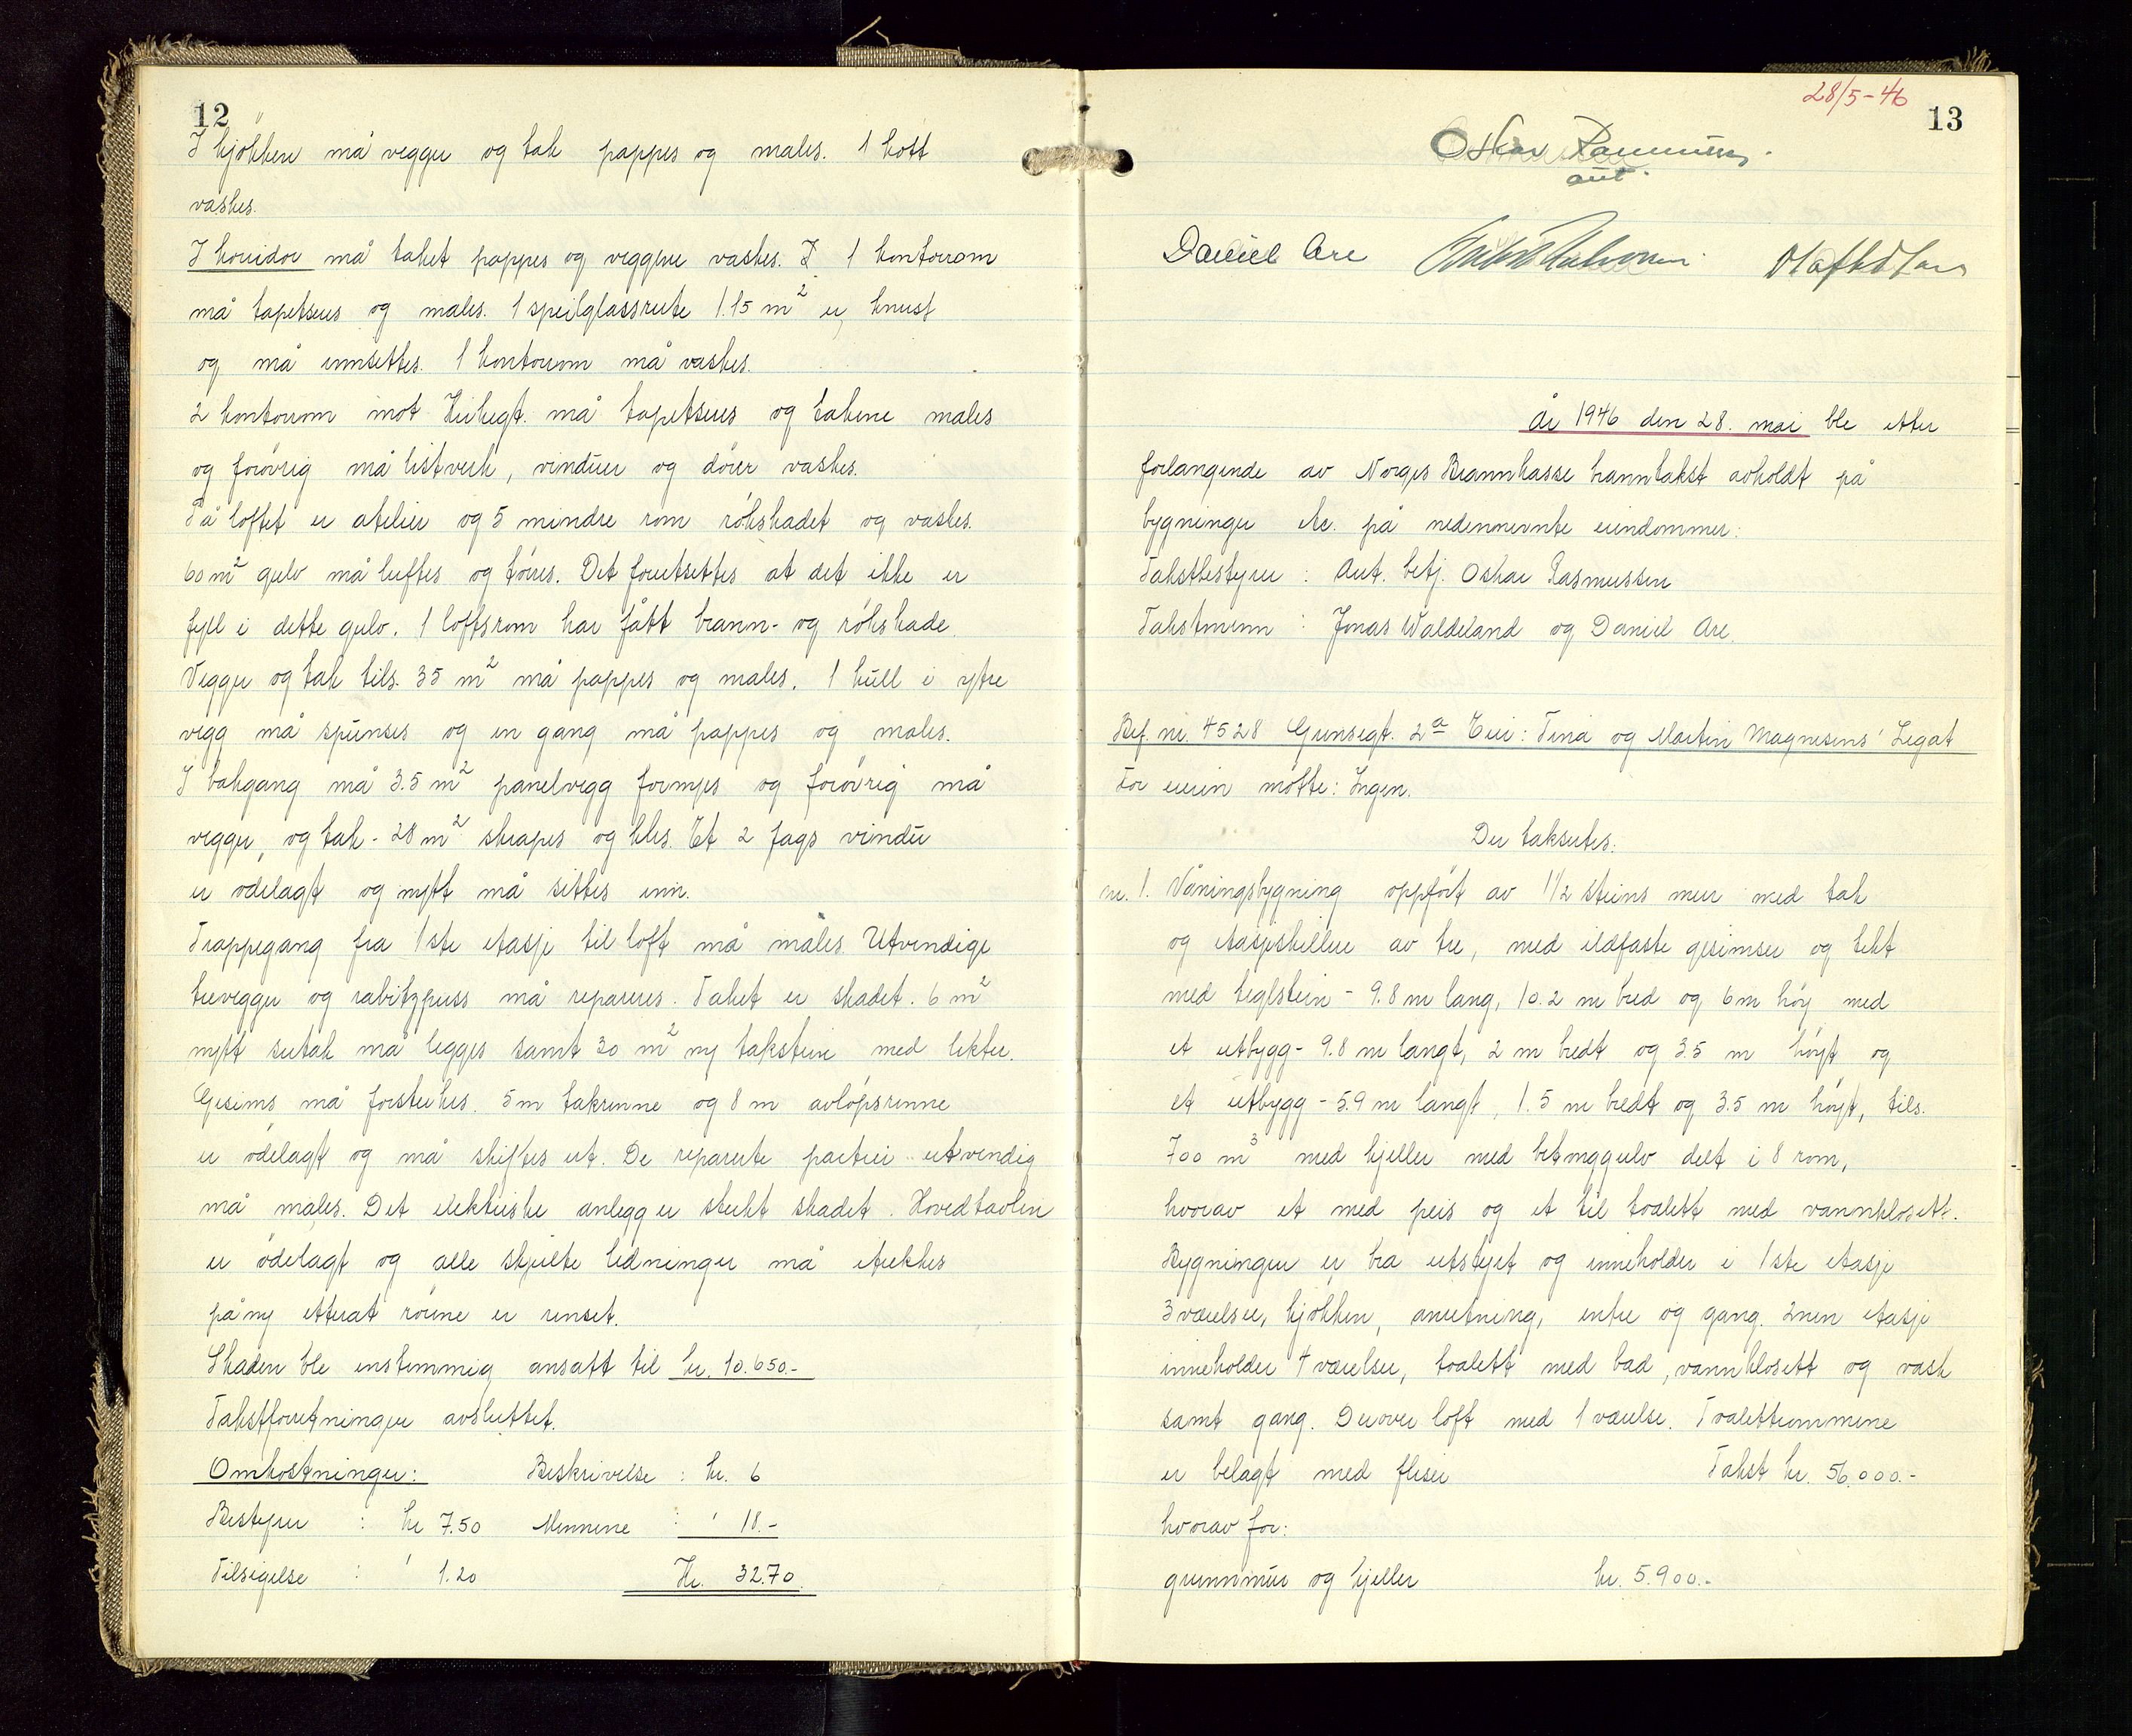 12
I kjøkken må vegger og tak pappes og males. 1 kott
vaskes.
I korridor må taket pappes og veggene vaskes. I 1 kontorrom
må tapetseres og males. 1 speilglassrute 1.15 m² er knust
og må innsettes. 1 kontorrom må vaskes.
2 kontorrom mot Kirkegt. må tapetseres og takene males
og forøvrig må listverk, vinduer og dører vaskes.
På loftet er atelier og 5 mindre rom røkskadet og vaskes.
60 m² gulv må luftes og tørres. Det forutsettes at det ikke er
fyll i dette gulv. 1 loftsrom har fått brann- og røkskade.
Vegger og tak tils. 35 m² må pappes og males. 1 hull i ytre
vegg må spunses og en gang må pappes og males.
I bakgang må 3.5 m² panelvegg fornyes og forøvrig må
vegger, og tak - 28 m² skrapes og
Et 2 fags vindu
er ødelagt og nytt må settes inn.
Trappegang fra 1ste etasje til loft må males. Utvendige
trevegger og rabitzpuss må repareres. Taket er skadet. 6 m²
nytt sutak må legges samt 30 m² ny takstein med lekter.
Gesims må forsterkes. 5 m takrenne og 8 m avløpsrenne
er ødelagt og må skiftes ut. De reparerte partier utvendig
må males. Det elektriske anlegg er sterkt skadet. Hovedtavlen
er ødelagt og alle skjulte ledninger må etrekkes
på ny etterat rørene er renset.
Skaden ble enstemmig ansatt til kr. 10.650.-
Takstforretningen avsluttet.
Omkostninger: Beskrivelse : kr. 6
Bestyrer : kr 7.50 Mennene : ' 18.-
Tilsigelse : ' 1.20 Kr. 32.70.
28/5-46
13
Oskar Rasmussen
aut.
Daniel Are
År 1946 den 28. mai ble etter
forlangende av Norges Brannkasse branntakst avholdt på
bygninger etc. på nedennevnte eiendommer:
Takstbestyrer : Aut. betj. Oskar Rasmussen
Takstmenn : Jonas Waldeland og Daniel Are.
Bef. nr. 4528 Grensegt. 2a Eier: Tina og Martin Magnesens' Legat
For eieren møtte: Ingen.
Der takseres:
nr. 1. Våningsbygning oppført av 1 1/2 steins mur med tak
og etasjeskillere av tre, med ildfaste gesimser og tekt
med teglstein - 9.8 m lang, 10.2 m bred og 6 m høy med
et utbygg - 9.8 m langt, 2 m bredt og 3.5 m høyt og
et utbygg - 5.9 m langt, 1.5 m bredt og 3.5 m høyt, tils.
700 m³ med kjeller med betonggulv delt i 8 rom,
hvorav et med peis og et til toalett med vannklosett.
Bygningen er bra utstyrt og inneholder i 1ste etasje
3 værelser, kjøkken, anretning, entre og gang. 2nen etasje
inneholder 4 værelser, toalett med bad, vannklosett og vask
samt gang. Derover loft med 1 værelse. Toalettrommene
er belagt med fliser Takst kr. 56.000.-
hvorav for:
grunnmur og kjeller kr. 5.900.-